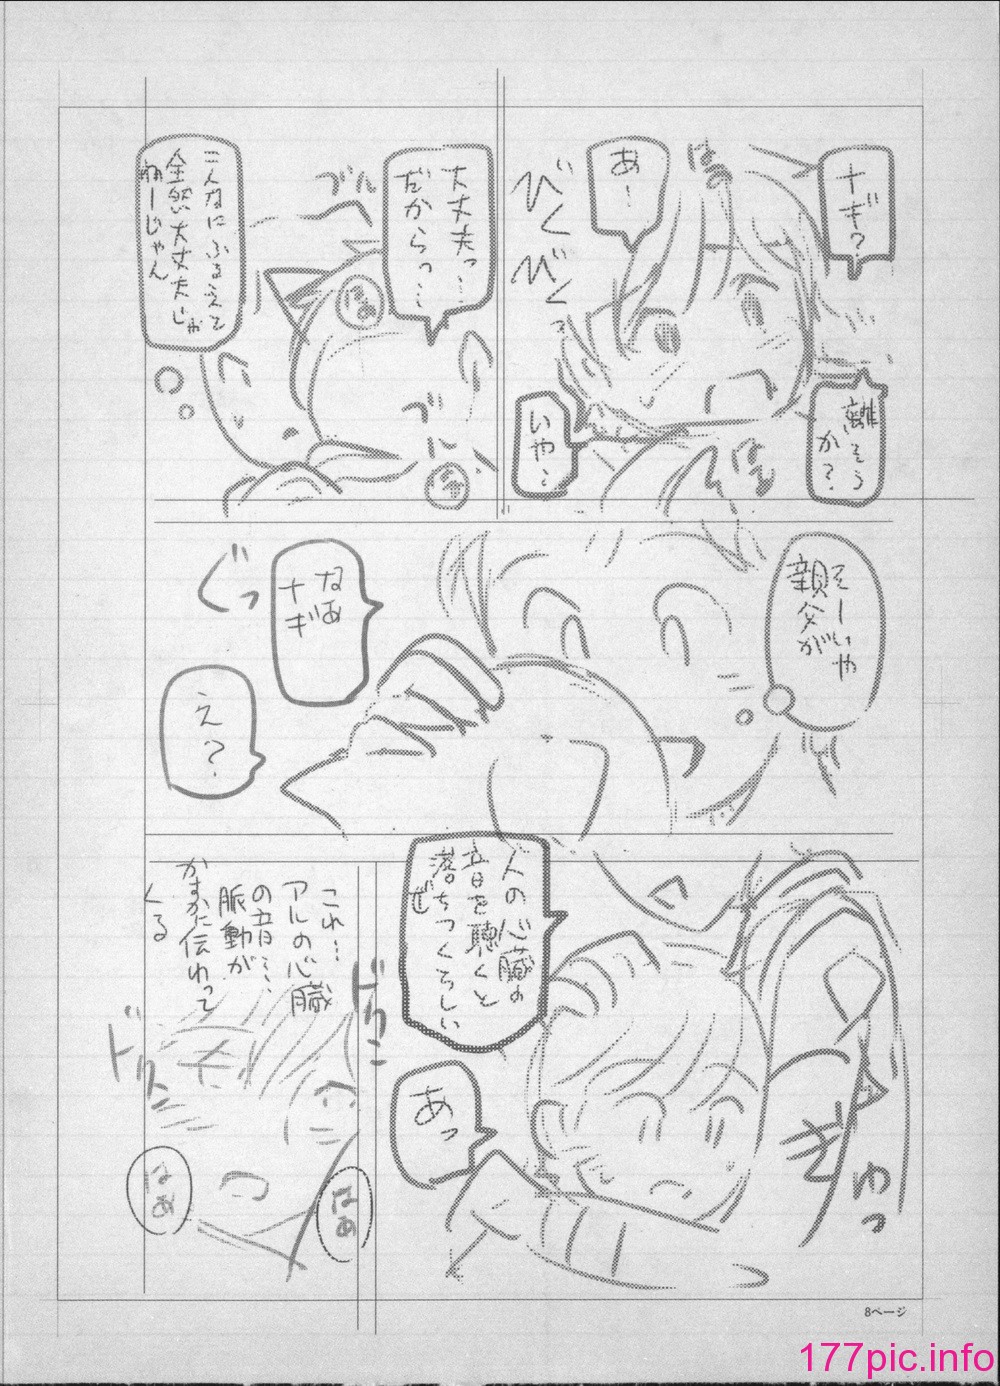 ナギ?
はぁ
あ…
びく
びく
離そう
か?
いや…
はぁ
大丈夫っ…
だからっ…
ブル
はぁ
ブル
はぁ
こんなにふるえて
全然大丈夫じゃ
ねーじゃん
そーいや
親父が
なぁ
ナギ
ぐっ
え?
人の心臓の
音を聴くと
落ちつくらしい
ぜ
ぎゅっ
あっ
これ…
アルの心臓
の音…
脈動が
かすかに伝わって
くる
ドクン
ドクン
はぁ
はぁ
8ページ
177pic.info